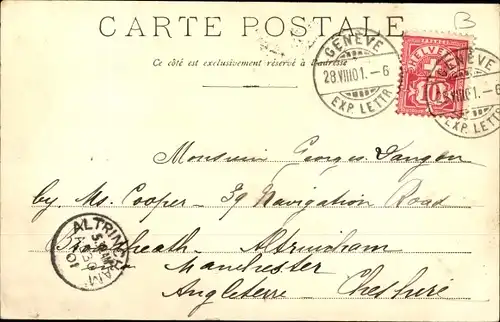 B
CARTE POSTALE
Ce côté est exclusivement réservé à l'adresse
GENÈVE
28.VIII.01.–6
EXP. LETTR.
HELVETIA
FRANCO
10
GENÈVE
28.VIII.01.–6
EXP. LETTR.
Monsieur Georges
by. Ms. Cooper - 39 Navigation Road
Altrincham
Manchester
Angleterre Cheshire
ALTRINCHAM
30
01